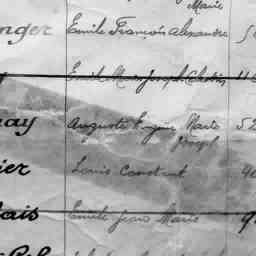 Marie
nger Emile François Alexandre 5
Emile Marie Joseph
nay Auguste Eugène Marie 52
Joseph
ier Louis Constant
lais Emile Jean Marie